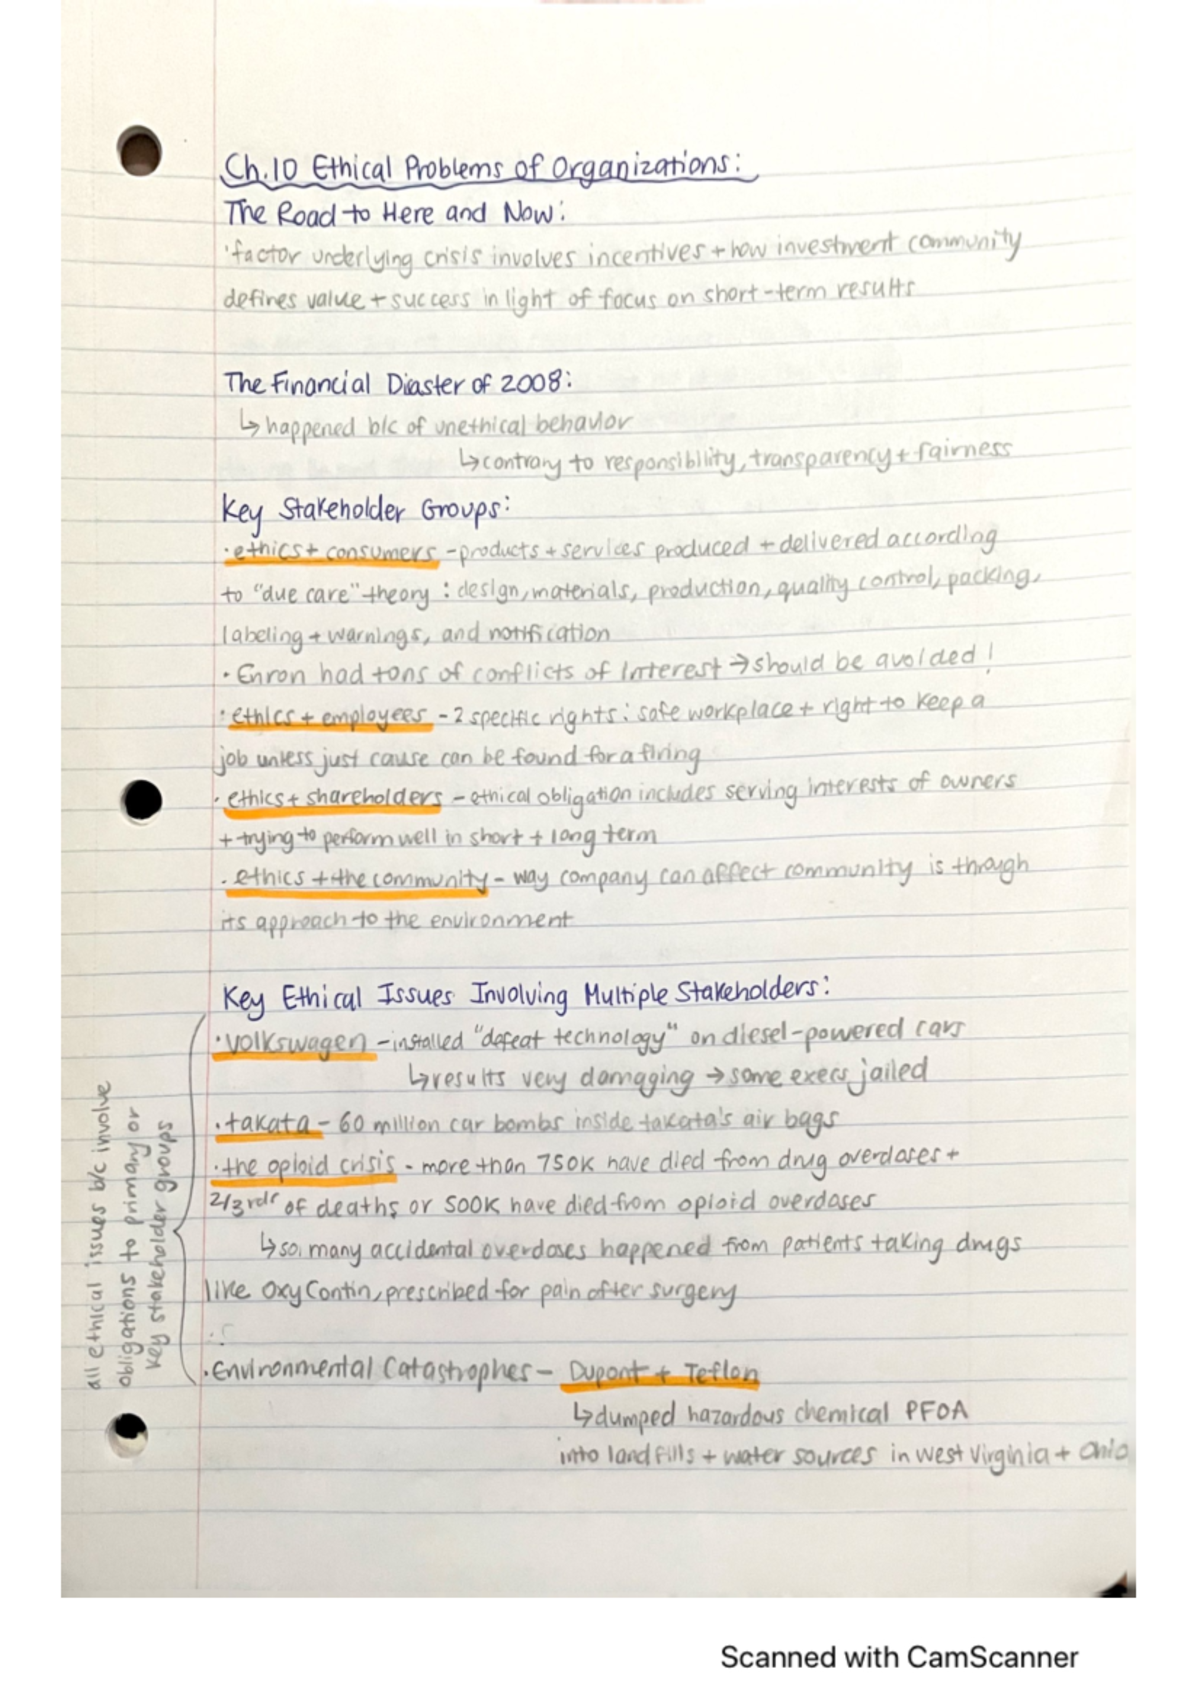 Ch.10 Ethical Problems of Organizations:
The Road to Here and Now:
·factor underlying crisis involves incentives + how investment community
defines value + success in light of focus on short-term results
The Financial Diaster of 2008:
↳ happened b/c of unethical behavior
↳ contrary to responsibility, transparency + fairness
Key Stakeholder Groups:
· ethics + consumers - products + services produced + delivered according
to "due care" theory : design, materials, production, quality control, packing,
labeling + warnings, and notification
· Enron had tons of conflicts of interest → should be avoided!
· ethics + employees - 2 specific rights: safe workplace + right to keep a
job unless just cause can be found for a firing
· ethics + shareholders - ethical obligation includes serving interests of owners
+ trying to perform well in short + long term
· ethics + the community - way company can affect community is through
its approach to the environment
Key Ethical Issues Involving Multiple Stakeholders:
· Volkswagen - installed "defeat technology" on diesel-powered cars
↳ results very damaging → some execs jailed
· takata - 60 million car bombs inside takata's air bags
· the opioid crisis - more than 750K have died from drug overdoses +
2/3rds of deaths or 500K have died from opioid overdoses
↳ so, many accidental overdoses happened from patients taking drugs
like OxyContin, prescribed for pain after surgery
· Environmental Catastrophes - Dupont + Teflon
↳ dumped hazardous chemical PFOA
into landfills + water sources in west Virginia + Ohio
all ethical issues b/c involve
obligations to primary or
key stakeholder groups
Scanned with CamScanner